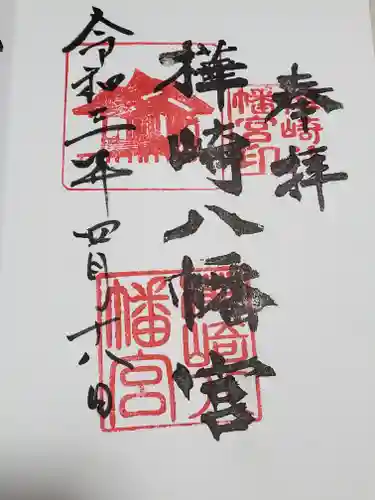 奉拝
樺崎八幡宮
令和三年四月十八日
樺崎八幡宮印
樺崎八幡宮